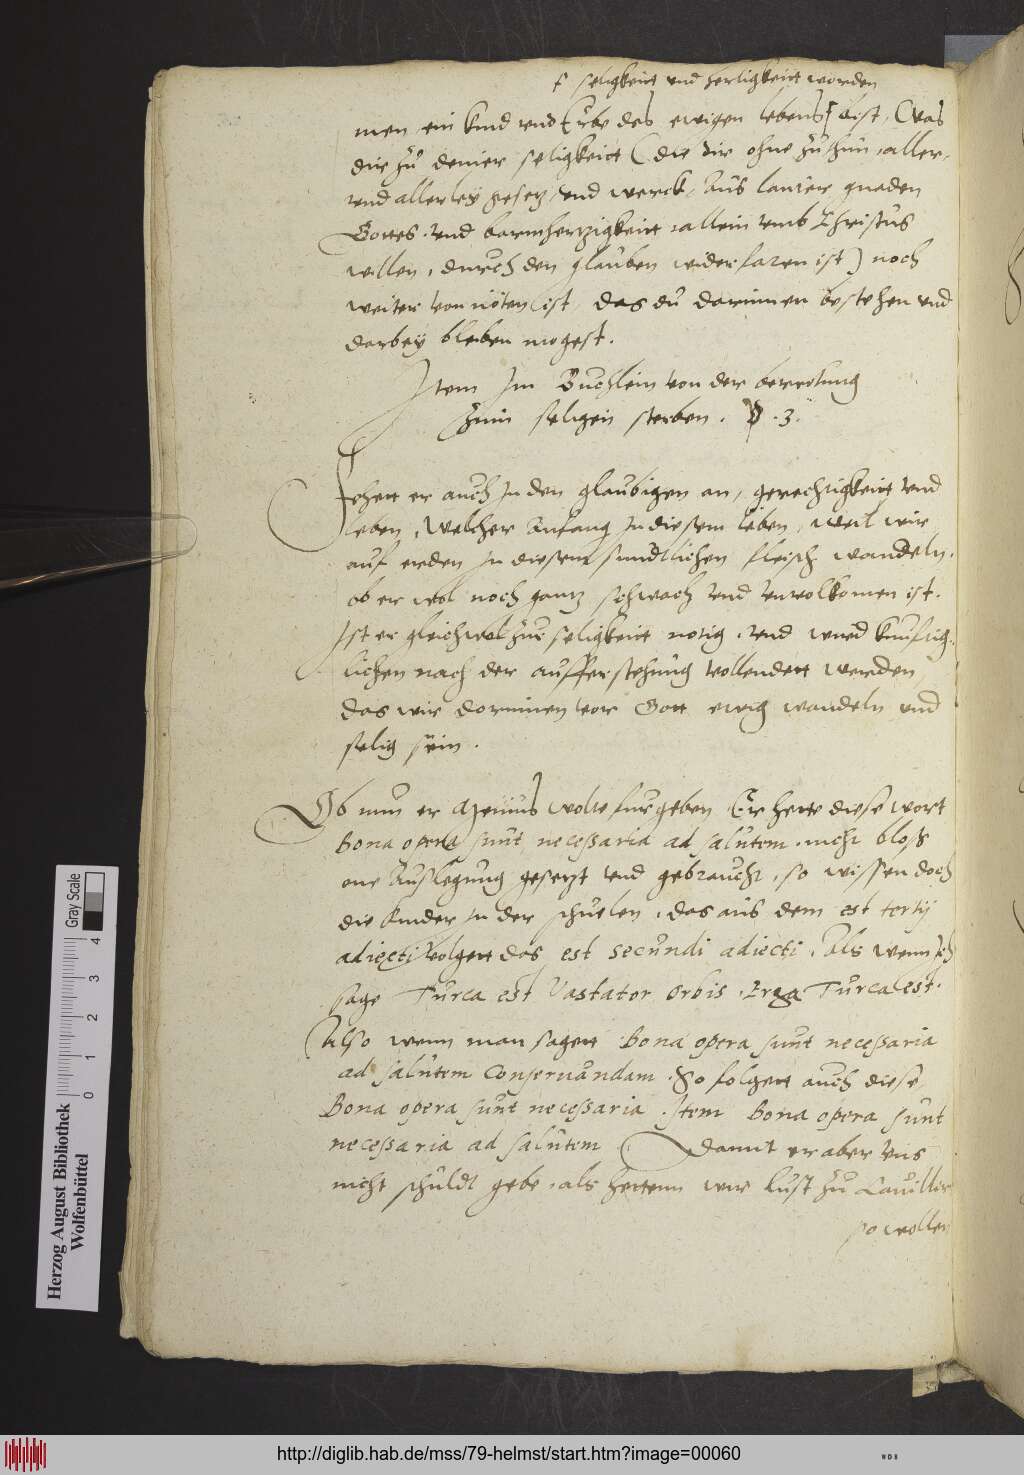 ſ seligkeitt vnd herligkeitt worden
men, ein kind vnd Erbe des ewigen lebens ſ bist, (was
dir zů deiner seligkeitt (die dir ohne zuthun, aller,
vnd allerley gesetz, vnd werck, Aus lauter gnaden
Gottes, vnd barmhertzigkeitt, allein vmb Christus
willen, durch den glauben widerfaren ist) noch
weiter von nöten ist, das du darinnen bestehen vnd
darbey bleiben mogest.
Item Im Buchlein von der bereitung
zum seligen sterben. D .3.
ehett er auch In den glaubigen an, gerechtigkeitt vnd
leben, Welcher Anfang In diesem leben, weil wir
auf erden In diesem sundtlichen fleisch wandeln,
ob er wol noch gantz schwach vnd vnvolkomen ist.
Ist er gleichwol zur seligkeitt notig, vnd wird kunftig-
lichen nach der aufferstehung vollendett werden,
das wir dorinnen vor Gott ewig wandeln vnd
selig sein.
Ob nun er Menius wolte furgeben Er hette diese wort
Bona opera sunt necessaria ad salutem, nicht bloss
one Auslegung gesetzt vnd gebraucht, so wissen doch
die kinder In der schuelen, das aus dem est tertij
adiecti volgett das est secundi adiecti, Als wenn ich
sage Turca est Vastator orbis . Erga Turca est.
Also wenn man sagett Bona opera sunt necessaria
ad salutem conseruandam . So folgett auch diese
Bona opera sunt necessaria . Item Bona opera sunt
necessaria ad salutem Damit er aber vns
nicht schuldt gebe, als hettenn wir lust zu Cauillir
so wollen
Herzog August Bibliothek
Wolfenbüttel
0 1 2 3 4
Gray Scale
http://diglib.hab.de/mss/79-helmst/start.htm?image=00060
WDB